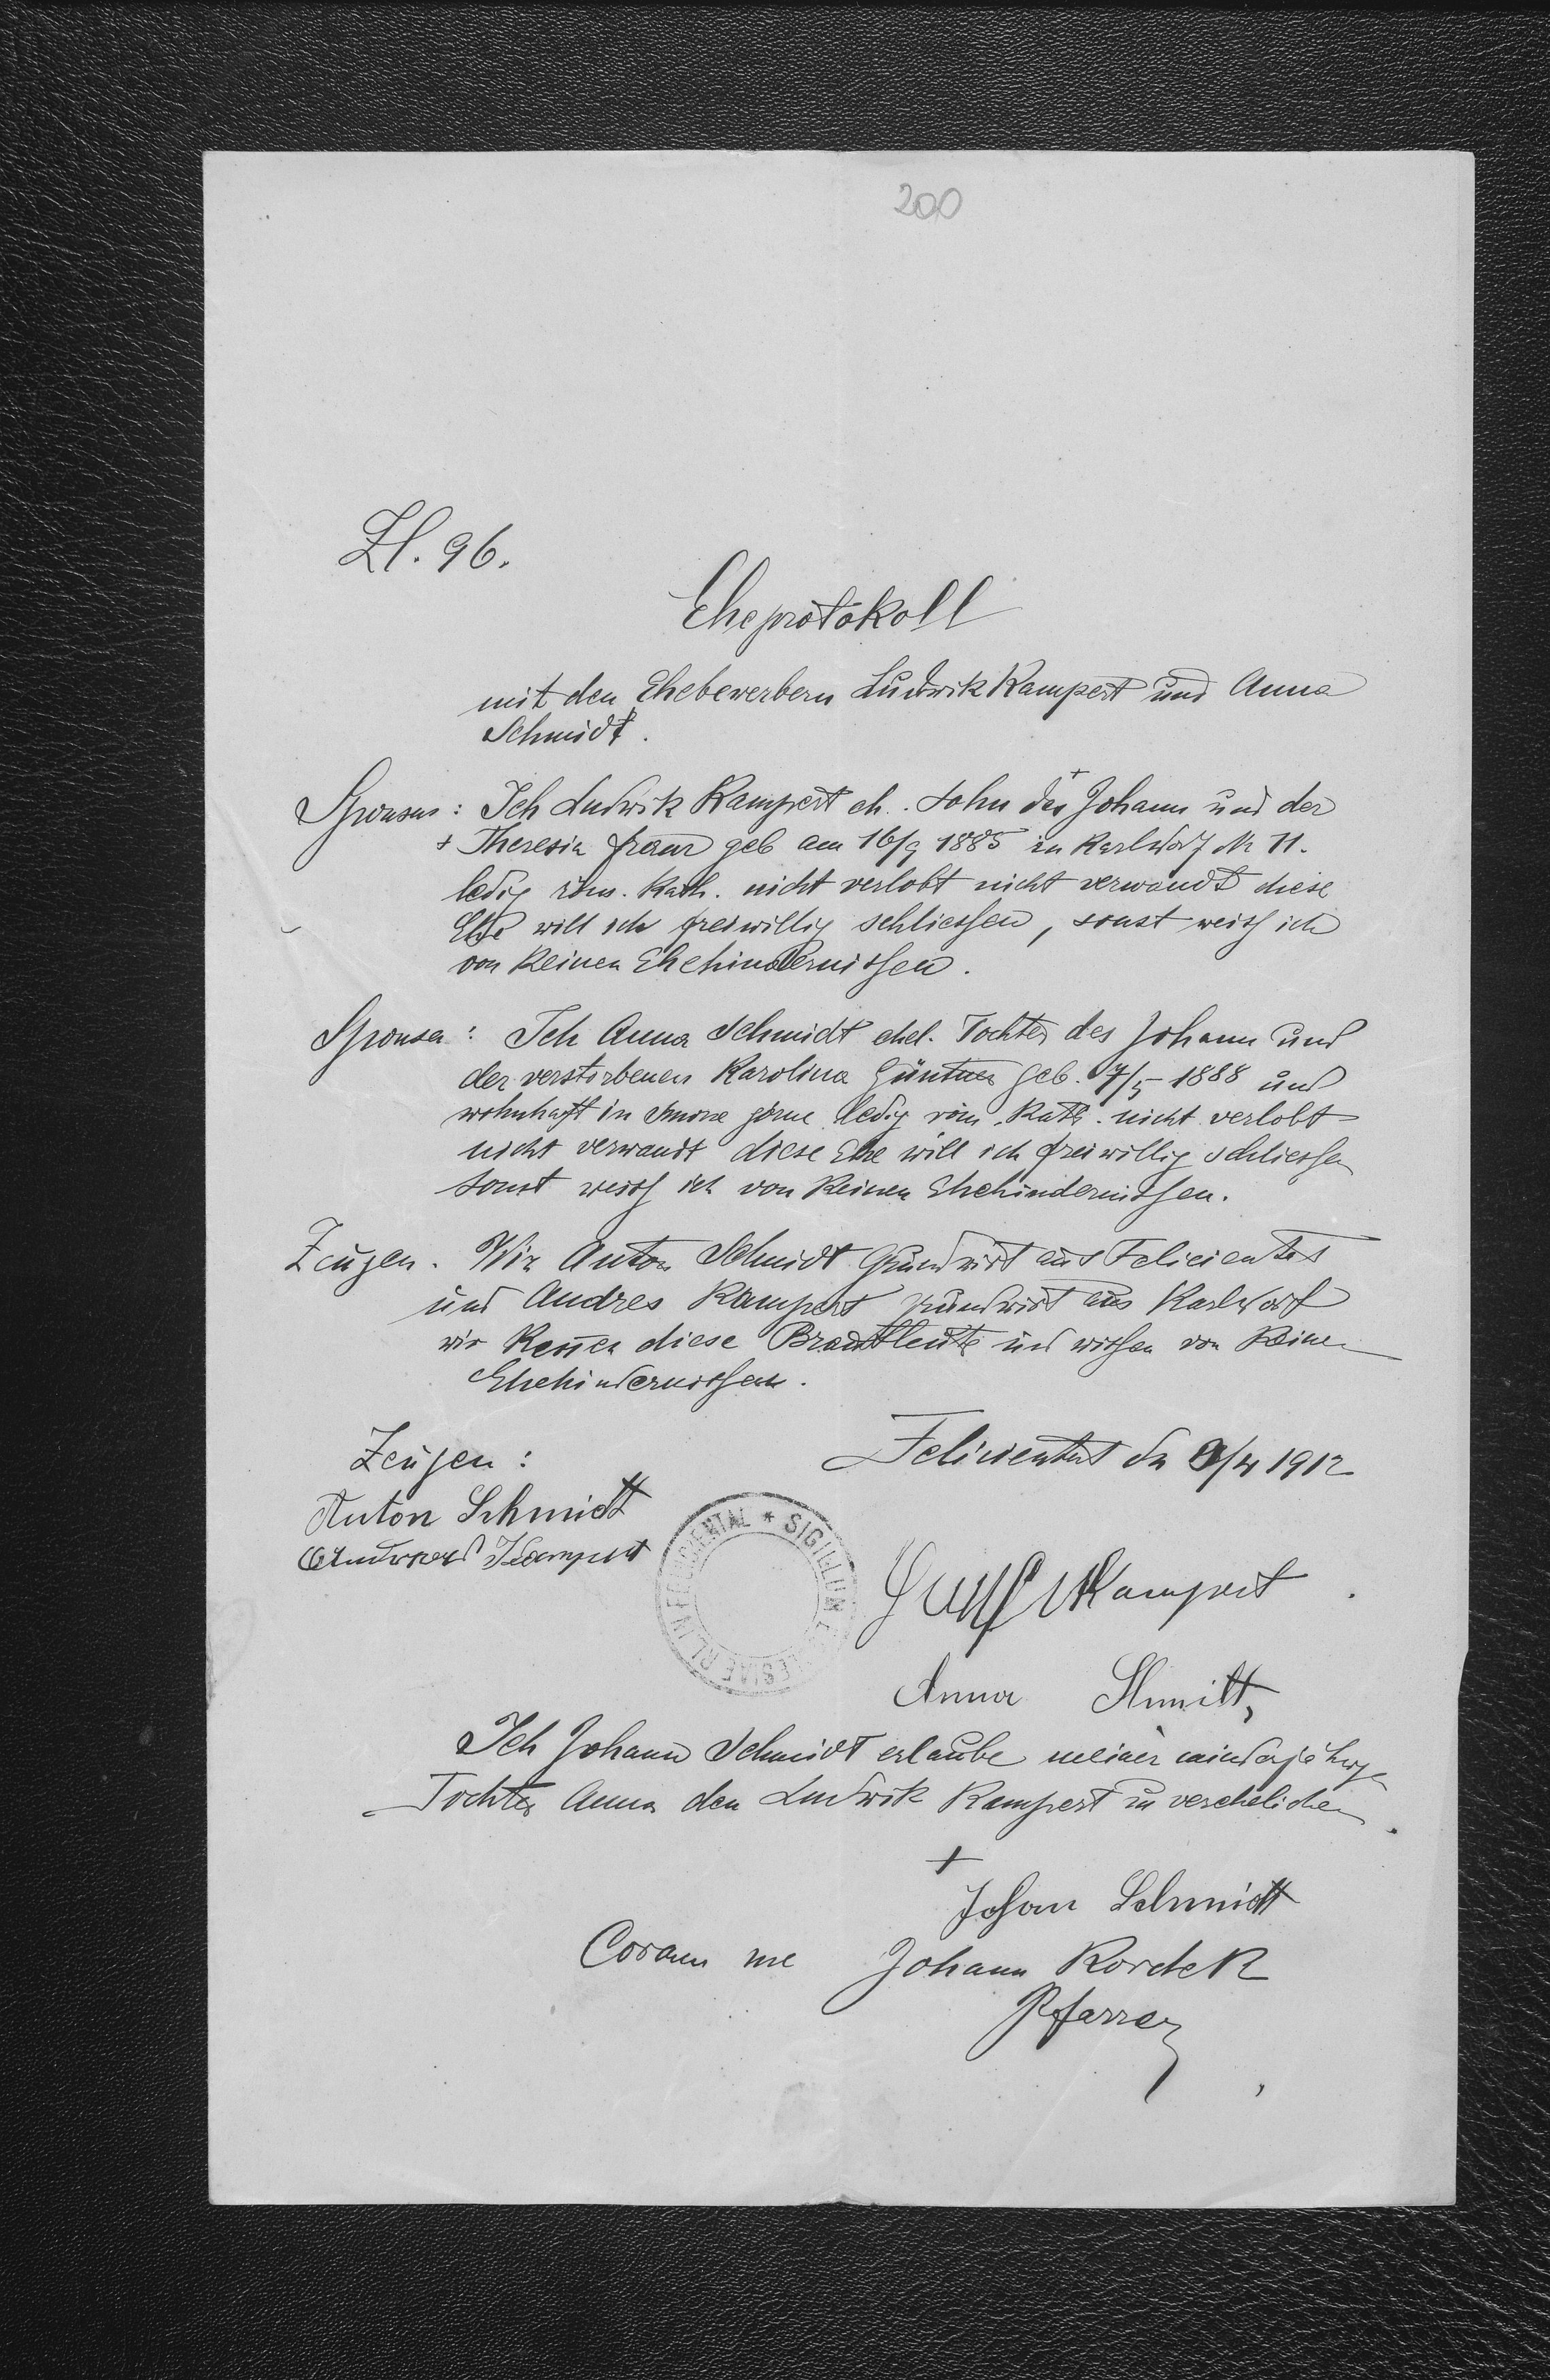 200
Zl. 96.
Eheprotokoll
mit den Ehebewerbern Ludwik Kampert und Anna
Schmidt.
Sponsus: Ich Ludwik Kampert eh. Sohn des + Johann und der
+ Theresia geb am 16/9 1885 in Karlsdorf Nr 11.
ledig röm. Kath. nicht verlobt nicht verwandt diese
Ehe will ich freiwillig schliessen, sonst weiss ich
von Keinen Ehehindernissen.
Sponsa: Ich Anna Schmidt ehel. Tochter des Johann und
der verstorbenen Karolina Güntner geb. 7/5 1888 und
wohnhaft in Smorze górne ledig röm. Kath. nicht verlobt
nicht verwandt diese Ehe will ich freiwillig schliessen
sonst weiss ich von Keinen Ehehindernissen.
Zeugen. Wir Anton Schmidt Grundwirt aus Felicientes
und Andres Kampert Grundwirt aus Karlsdorf
wir Kennen diese Brautleute und wissen von Keinen
Ehehindernissen.
Zeugen: Felicientat den /4 1912
Anton Schmidt
Andreas Kampert
SIGILLUM ECCLESIAE RL. IN FELICIENTAL *
Kampert
Anna Shmitt,
Ich Johann Schmidt erlaube meiner minderjährigen
Tochter Anna den Ludwik Kampert zu verehelichen.
+
Johan Schmidt
Coram me Johann Kordek
Pfarrer